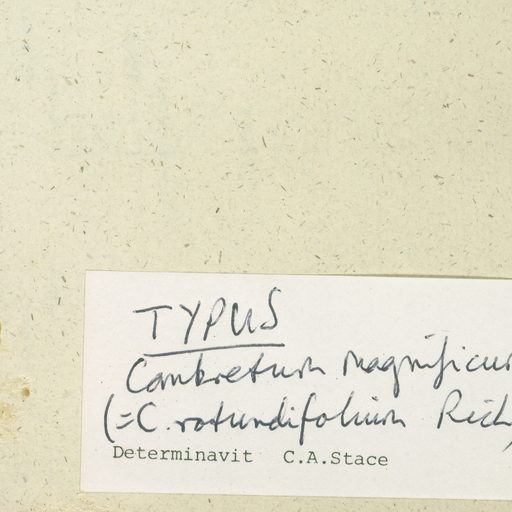 TYPUS
Combretum magnificum
(=C. rotundifolium Rich,
Determinavit C.A.Stace